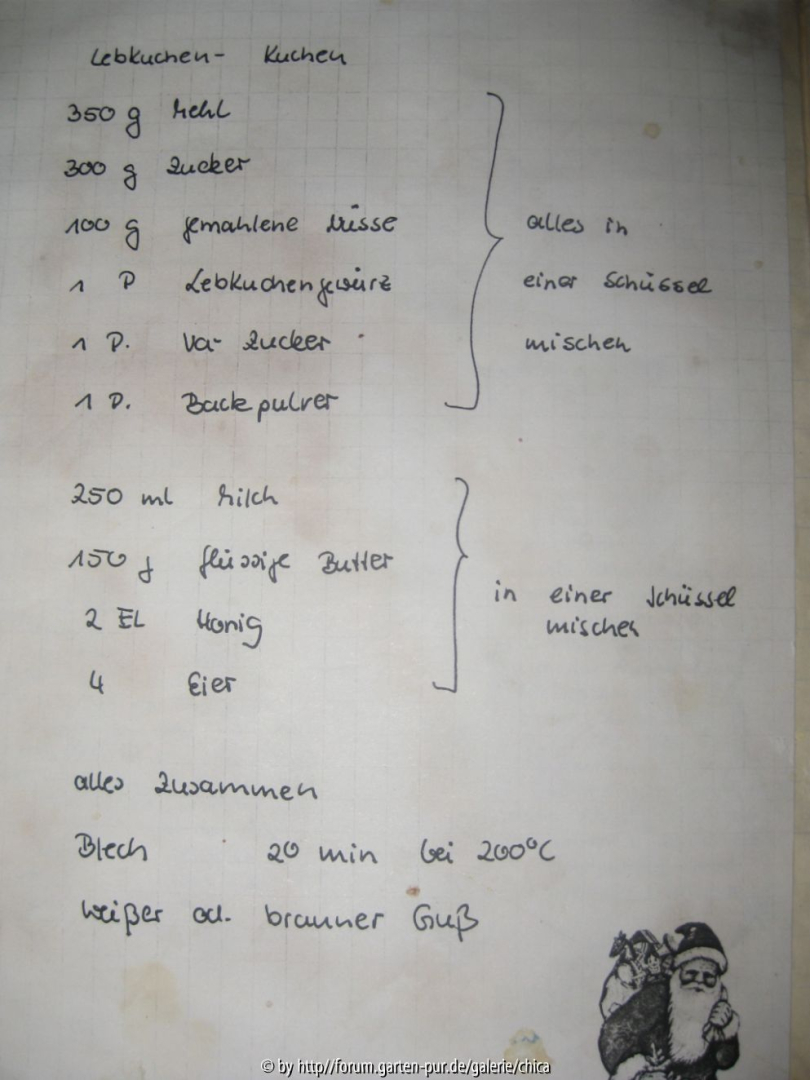 Lebkuchen- Kuchen
350 g Mehl
300 g Zucker
100 g gemahlene Nüsse
1 P Lebkuchengewürz
1 P. Va- Zucker
1 P. Backpulver
alles in
einer Schüssel
mischen
250 ml Milch
150 g flüssige Butter
2 EL Honig
4 Eier
in einer Schüssel
mischen
alles zusammen
Blech 20 min bei 200°C
weißer od. brauner Guß
© by http//forum.garten-pur.de/galerie/chica